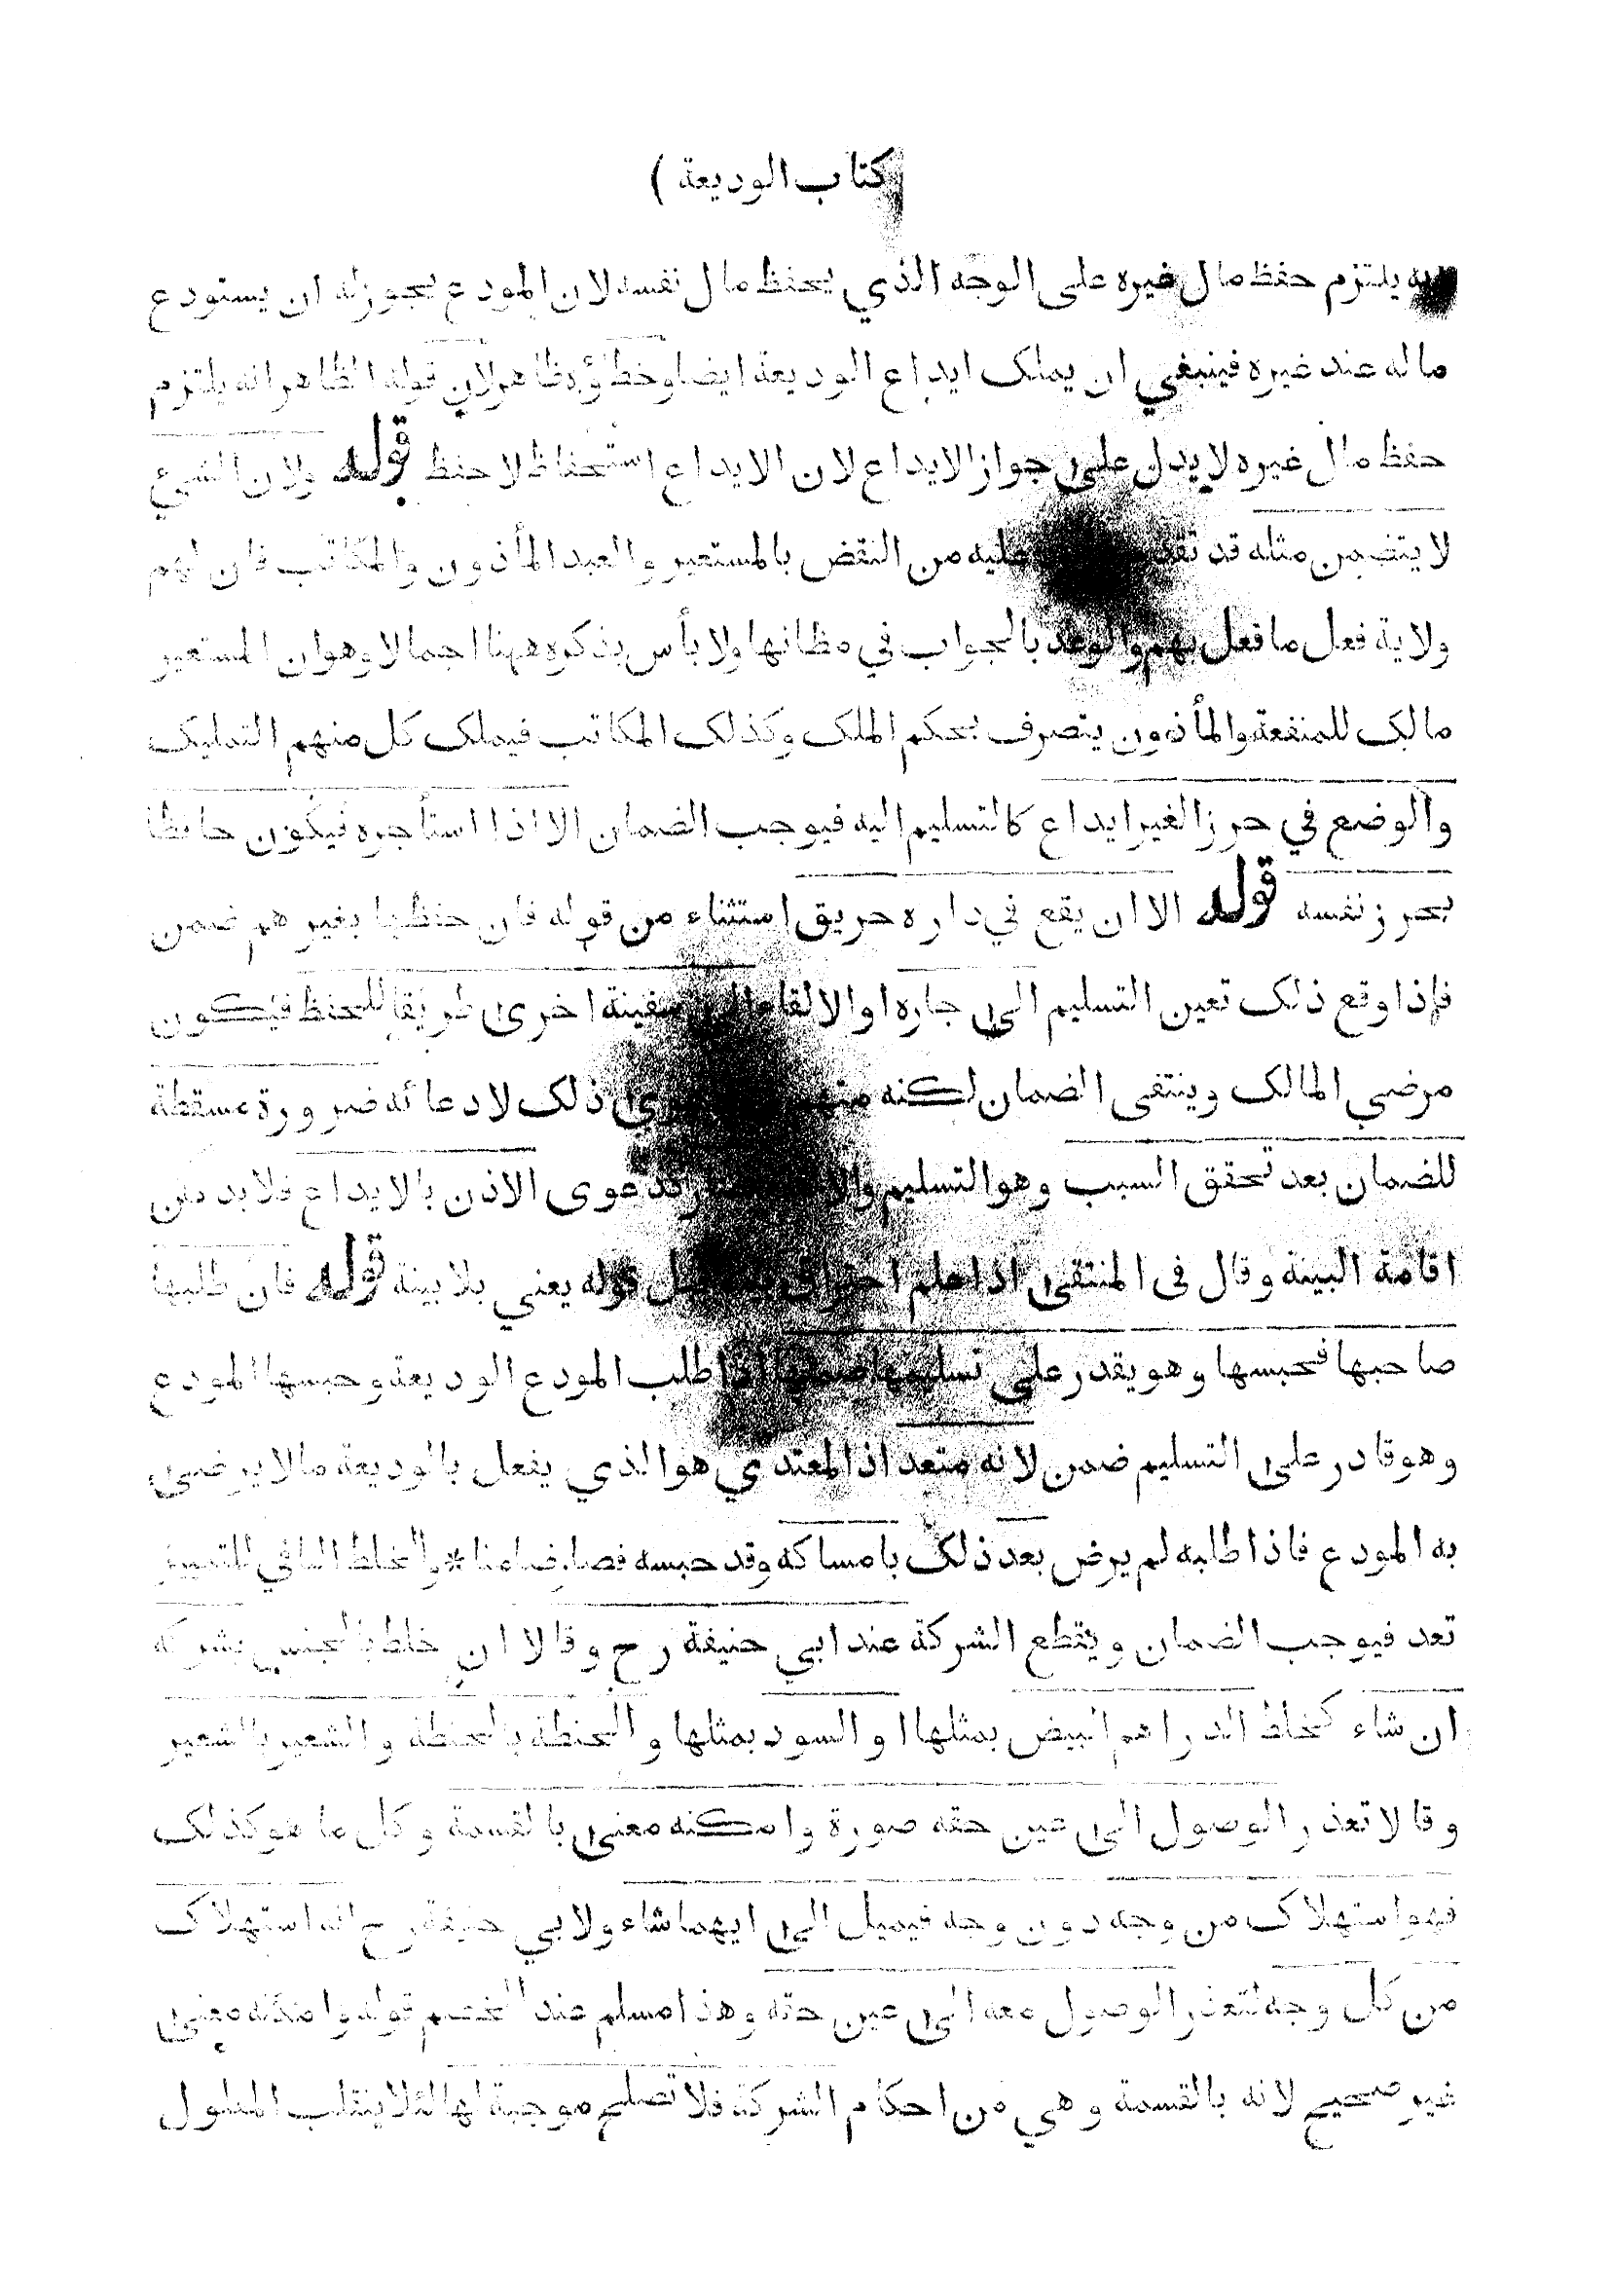 ( كتاب الوديعة )
به يلتزم حفظ مال غيره على الوجه الذي يحفظ مال نفسه لان المودع يجوز له ان يستودع
ماله عند غيره فينبغي ان يملك ايداع الوديعة ايضا وخطؤه ظاهر لان قوله الظاهر انه يلتزم
حفظ مال غيره لا يدل على جواز الايداع لان الايداع استحفاظ لا حفظ قوله ولان الشئ
لا يتضمن مثله قد عليه من النقض بالمستعير والعبد المأذون والمكاتب فان لهم
ولاية فعل ما فعل بهم والوعد بالجواب في مظانها ولا بأس بذكره ههنا اجمالا وهو ان المستعير
مالك للمنفعة والمأذون يتصرف بحكم الملك وكذلك المكاتب فيملك كل منهم التمليك
والوضع في حرز الغير ايداع كالتسليم اليه فيوجب الضمان الا اذا استأجره فيكون حافظا
بحرز نفسه قوله الا ان يقع في داره حريق استثناء من قوله فان حفظها بغيرهم ضمن
فإذا وقع ذلك تعين التسليم الى جاره او الالقاء الى سفينة اخرى طريقا للحفظ فيكون
مرضي المالك وينتفى الضمان لكنه ذلك لادعائه ضرورة مسقطة
للضمان بعد تحقق السبب وهو التسليم دعوى الاذن بالايداع فلا بد من
اقامة البينة وقال فى المنتقى اذا علم قوله يعني بلا بينة قوله فان طلبها
صاحبها فحبسها وهو يقدر على تسليمها ضمنها اذا طلب المودع الوديعة وحبسها المودع
وهو قادر على التسليم ضمن لانه متعد اذ المعتدي هو الذي يفعل بالوديعة ما لا يرضى
به المودع فاذا طلبه لم يرض بعد ذلك بامساكه وقد حبسه فصار ضامنا * والخلط النافي للتمييز
تعد فيوجب الضمان ويقطع الشركة عند ابي حنيفة رح وقالا ان خلط بالجنس يشركه
ان شاء كخلط الدراهم البيض بمثلها او السود بمثلها والحنطة بالحنطة والشعير بالشعير
وقالا تعذر الوصول الى عين حقه صورة وامكنه معنى بالقسمة وكل ما هو كذلك
فهو استهلاك من وجه دون وجه فيميل الى ايهما شاء ولابي حنيفة رح انه استهلاك
من كل وجه لتعذر الوصول معه الى عين حقه وهذا مسلم عند الخصم قوله وامكنه معنى
غير صحيح لانه بالقسمة وهي من احكام الشركة فلا تصلح موجبة لها لئلا ينقلب المعلول